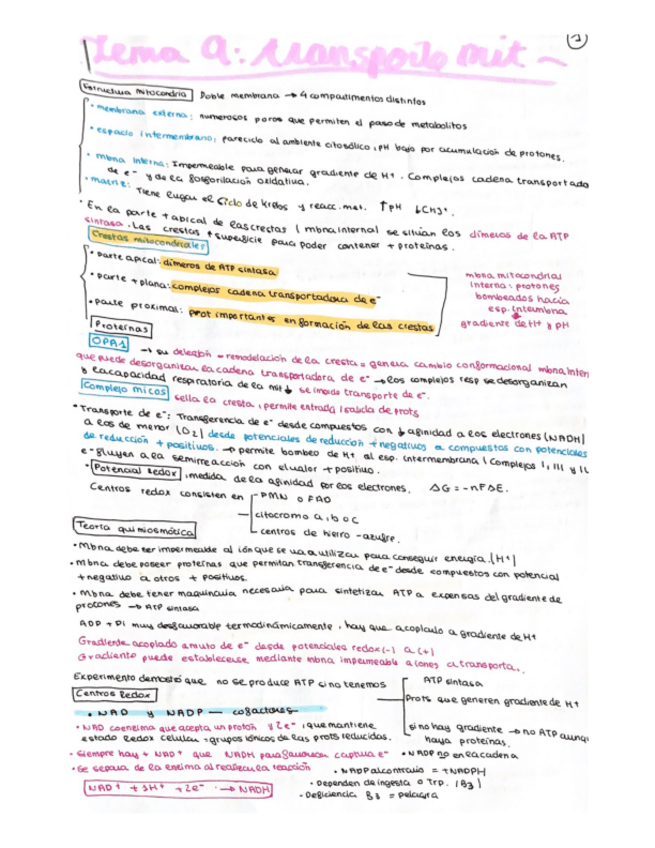 1
Tema 9: transporte mit
Estructura mitocondria Doble membrana → 4 compartimentos distintos
• membrana externa: numerosos poros que permiten el paso de metabolitos
• espacio intermembrano: parecido al ambiente citosólico, pH bajo por acumulación de protones.
• mbna interna: Impermeable para generar gradiente de H+. Complejos cadena transportado
de e- y de la fosforilación oxidativa.
• matriz: Tiene lugar el ciclo de krebs y reacc. met. ↑pH
• En la parte + apical de las crestas (mbna interna) se sitúan los dímeros de la ATP
sintasa. Las crestas ↑ superficie para poder contener + proteínas.
Crestas mitocondriales
• Parte apical: dímeros de ATP sintasa
• Parte + plana: complejos cadena transportadora de e-
• Parte proximal: prot importantes en formación de las crestas
mbna mitocondrial
interna: protones
bombeados hacia
esp. intermbna
gradiente de H+ y pH
Proteínas
OPA1
→ su deleción = remodelación de la cresta = genera cambio conformacional mbna inter
que puede desorganizar la cadena transportadora de e- → los complejos resp se desorganizan
y la capacidad respiratoria de la mit ↓ se impide transporte de e-.
Complejo micos sella la cresta, permite entrada/salida de prots
• Transporte de e-: Transferencia de e- desde compuestos con ↓ afinidad a los electrones (NADH)
a los de menor (O2) desde potenciales de reducción + negativos a compuestos con potenciales
de reducción + positivos. → permite bombeo de H+ al esp. intermembrana (Complejos I, III y IV
e- fluyen a la semirreacción con el valor + positivo.
• Potencial redox, medida de la afinidad por los electrones. ΔG = -nFΔE.
Centros redox consisten en
FMN o FAD
citocromo a, b o c
centros de hierro-azufre.
Teoría quimiosmótica
• Mbna debe ser impermeable al ión que se va a utilizar para conseguir energía. (H+)
• Mbna debe poseer proteínas que permitan transferencia de e- desde compuestos con potencial
+ negativo a otros + positivos.
• Mbna debe tener maquinaria necesaria para sintetizar ATP a expensas del gradiente de
protones → ATP sintasa
ADP + Pi muy desfavorable termodinámicamente, hay que acoplarlo a gradiente de H+
Gradiente acoplado a mvto de e- desde potenciales redox (-) a (+)
Gradiente puede establecerse mediante mbna impermeable a iones a transportar.
Experimento demostró que no se produce ATP si no tenemos
ATP sintasa
Prots que generen gradiente de H+
si no hay gradiente → no ATP aunq
haya proteínas.
Centros Redox
• NAD y NADP — cofactores
• NAD coenzima que acepta un protón y 2e-, que mantiene
estado redox celular = grupos iónicos de las prots reducidos.
• siempre hay + NAD+ que NADH para favorecer captura e-
• NADP no en la cadena
• Se separa de la enzima al realizar la reacción
• NADP al contrario = + NADPH
• Dependen de ingesta o Trp. (B3)
NAD+ + H+ + 2e- → NADH
• Deficiencia B3 = pelagra